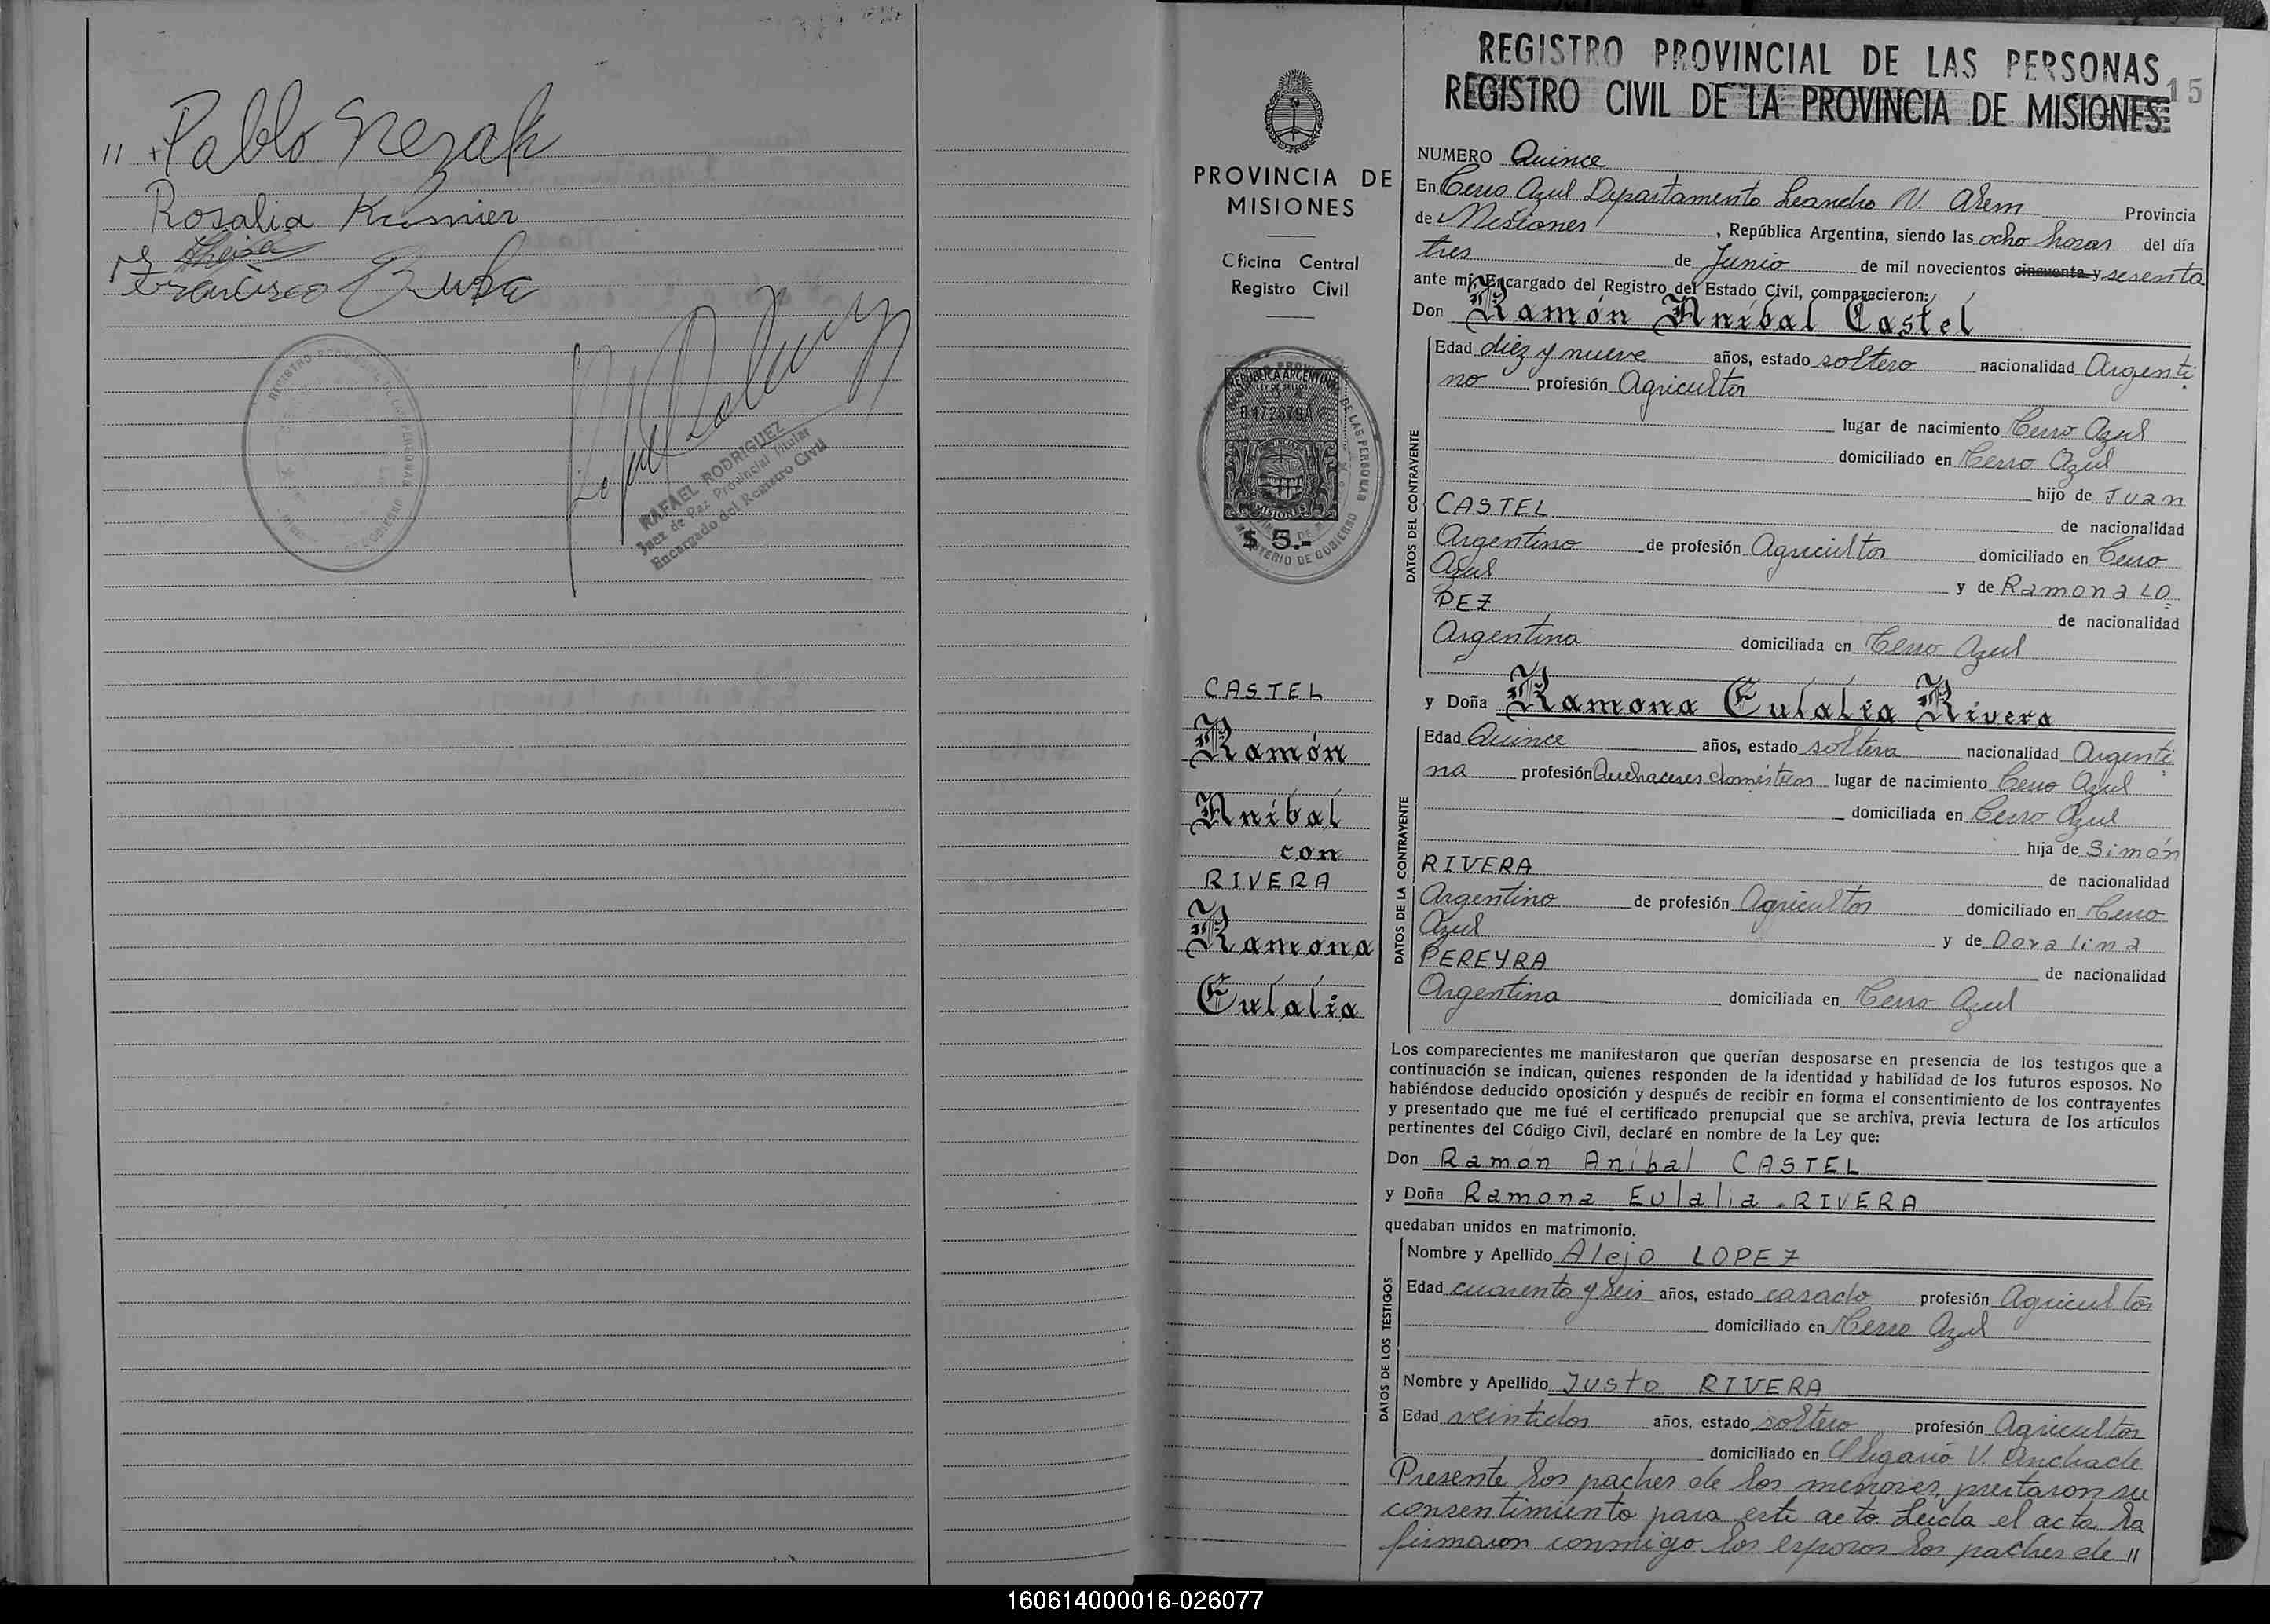 " Pablo Nezak
Rosalia Kusnier
Francisco
RAFAEL RODRIGUEZ
Juez de Paz Provincial Titular
Encargado del Registro Civil
PROVINCIA DE
MISIONES
Oficina Central
Registro Civil
REPUBLICA ARGENTINA
LEY DE SELLOS
MISIONES
$ 5.-
CASTEL
Ramón
Aníbal
con
RIVERA
Ramona
Eulalia
REGISTRO PROVINCIAL DE LAS PERSONAS
15
REGISTRO CIVIL DE LA PROVINCIA DE MISIONES
NUMERO Quince
En Cerro Azul Departamento Leandro N. Alem Provincia
de Misiones, República Argentina, siendo las ocho horas del día
tres de Junio de mil novecientos cincuenta y sesenta
ante mí, Encargado del Registro del Estado Civil, comparecieron:
Don Ramón Aníbal Castel
DATOS DEL CONTRAYENTE
Edad diez y nueve años, estado soltero nacionalidad Argenti
no profesión Agricultor
lugar de nacimiento Cerro Azul
domiciliado en Cerro Azul
hijo de Juan
CASTEL de nacionalidad
Argentino de profesión Agricultor domiciliado en Cerro
Azul y de Ramona LO=
PEZ de nacionalidad
Argentina domiciliada en Cerro Azul
y Doña Ramona Eulalia Rivera
DATOS DE LA CONTRAYENTE
Edad Quince años, estado soltera nacionalidad Argenti
na profesión Quehaceres domésticos lugar de nacimiento Cerro Azul
domiciliada en Cerro Azul
hija de Simón
RIVERA de nacionalidad
Argentino de profesión Agricultor domiciliado en Cerro
Azul y de Doralina
PEREYRA de nacionalidad
Argentina domiciliada en Cerro Azul
Los comparecientes me manifestaron que querían desposarse en presencia de los testigos que a
continuación se indican, quienes responden de la identidad y habilidad de los futuros esposos. No
habiéndose deducido oposición y después de recibir en forma el consentimiento de los contrayentes
y presentado que me fué el certificado prenupcial que se archiva, previa lectura de los artículos
pertinentes del Código Civil, declaré en nombre de la Ley que:
Don Ramón Anibal CASTEL
y Doña Ramona Eulalia RIVERA
quedaban unidos en matrimonio.
DATOS DE LOS TESTIGOS
Nombre y Apellido Alejo LOPEZ
Edad cuarenta y seis años, estado casado profesión Agricultor
domiciliado en Cerro Azul
Nombre y Apellido Justo RIVERA
Edad veintidos años, estado soltero profesión Agricultor
domiciliado en Olegario V. Andrade
Presente los padres de los menores, prestaron su
consentimiento para este acto. Leida el acta la
firmaron conmigo los esposos los padres de "
160614000016-026077